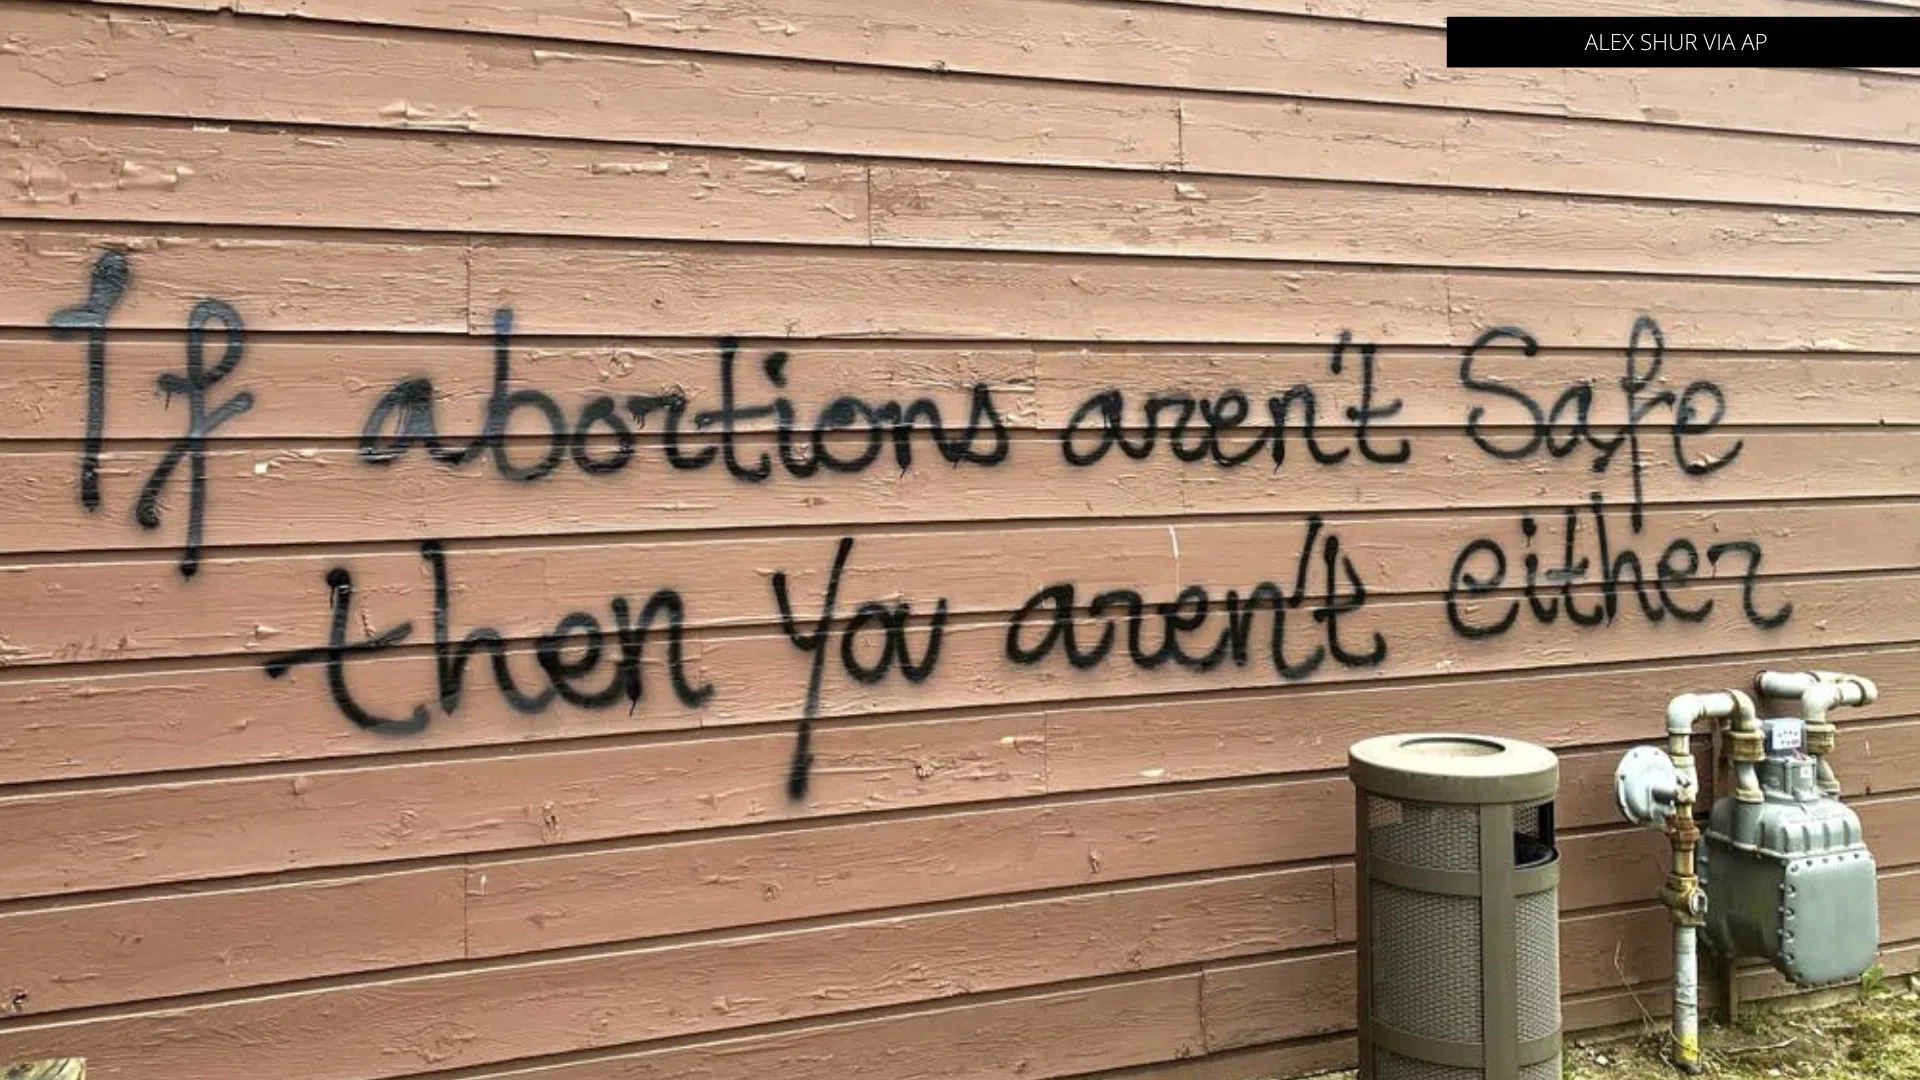 ALEX SHUR VIA AP
If abortions aren't Safe
then You aren't either